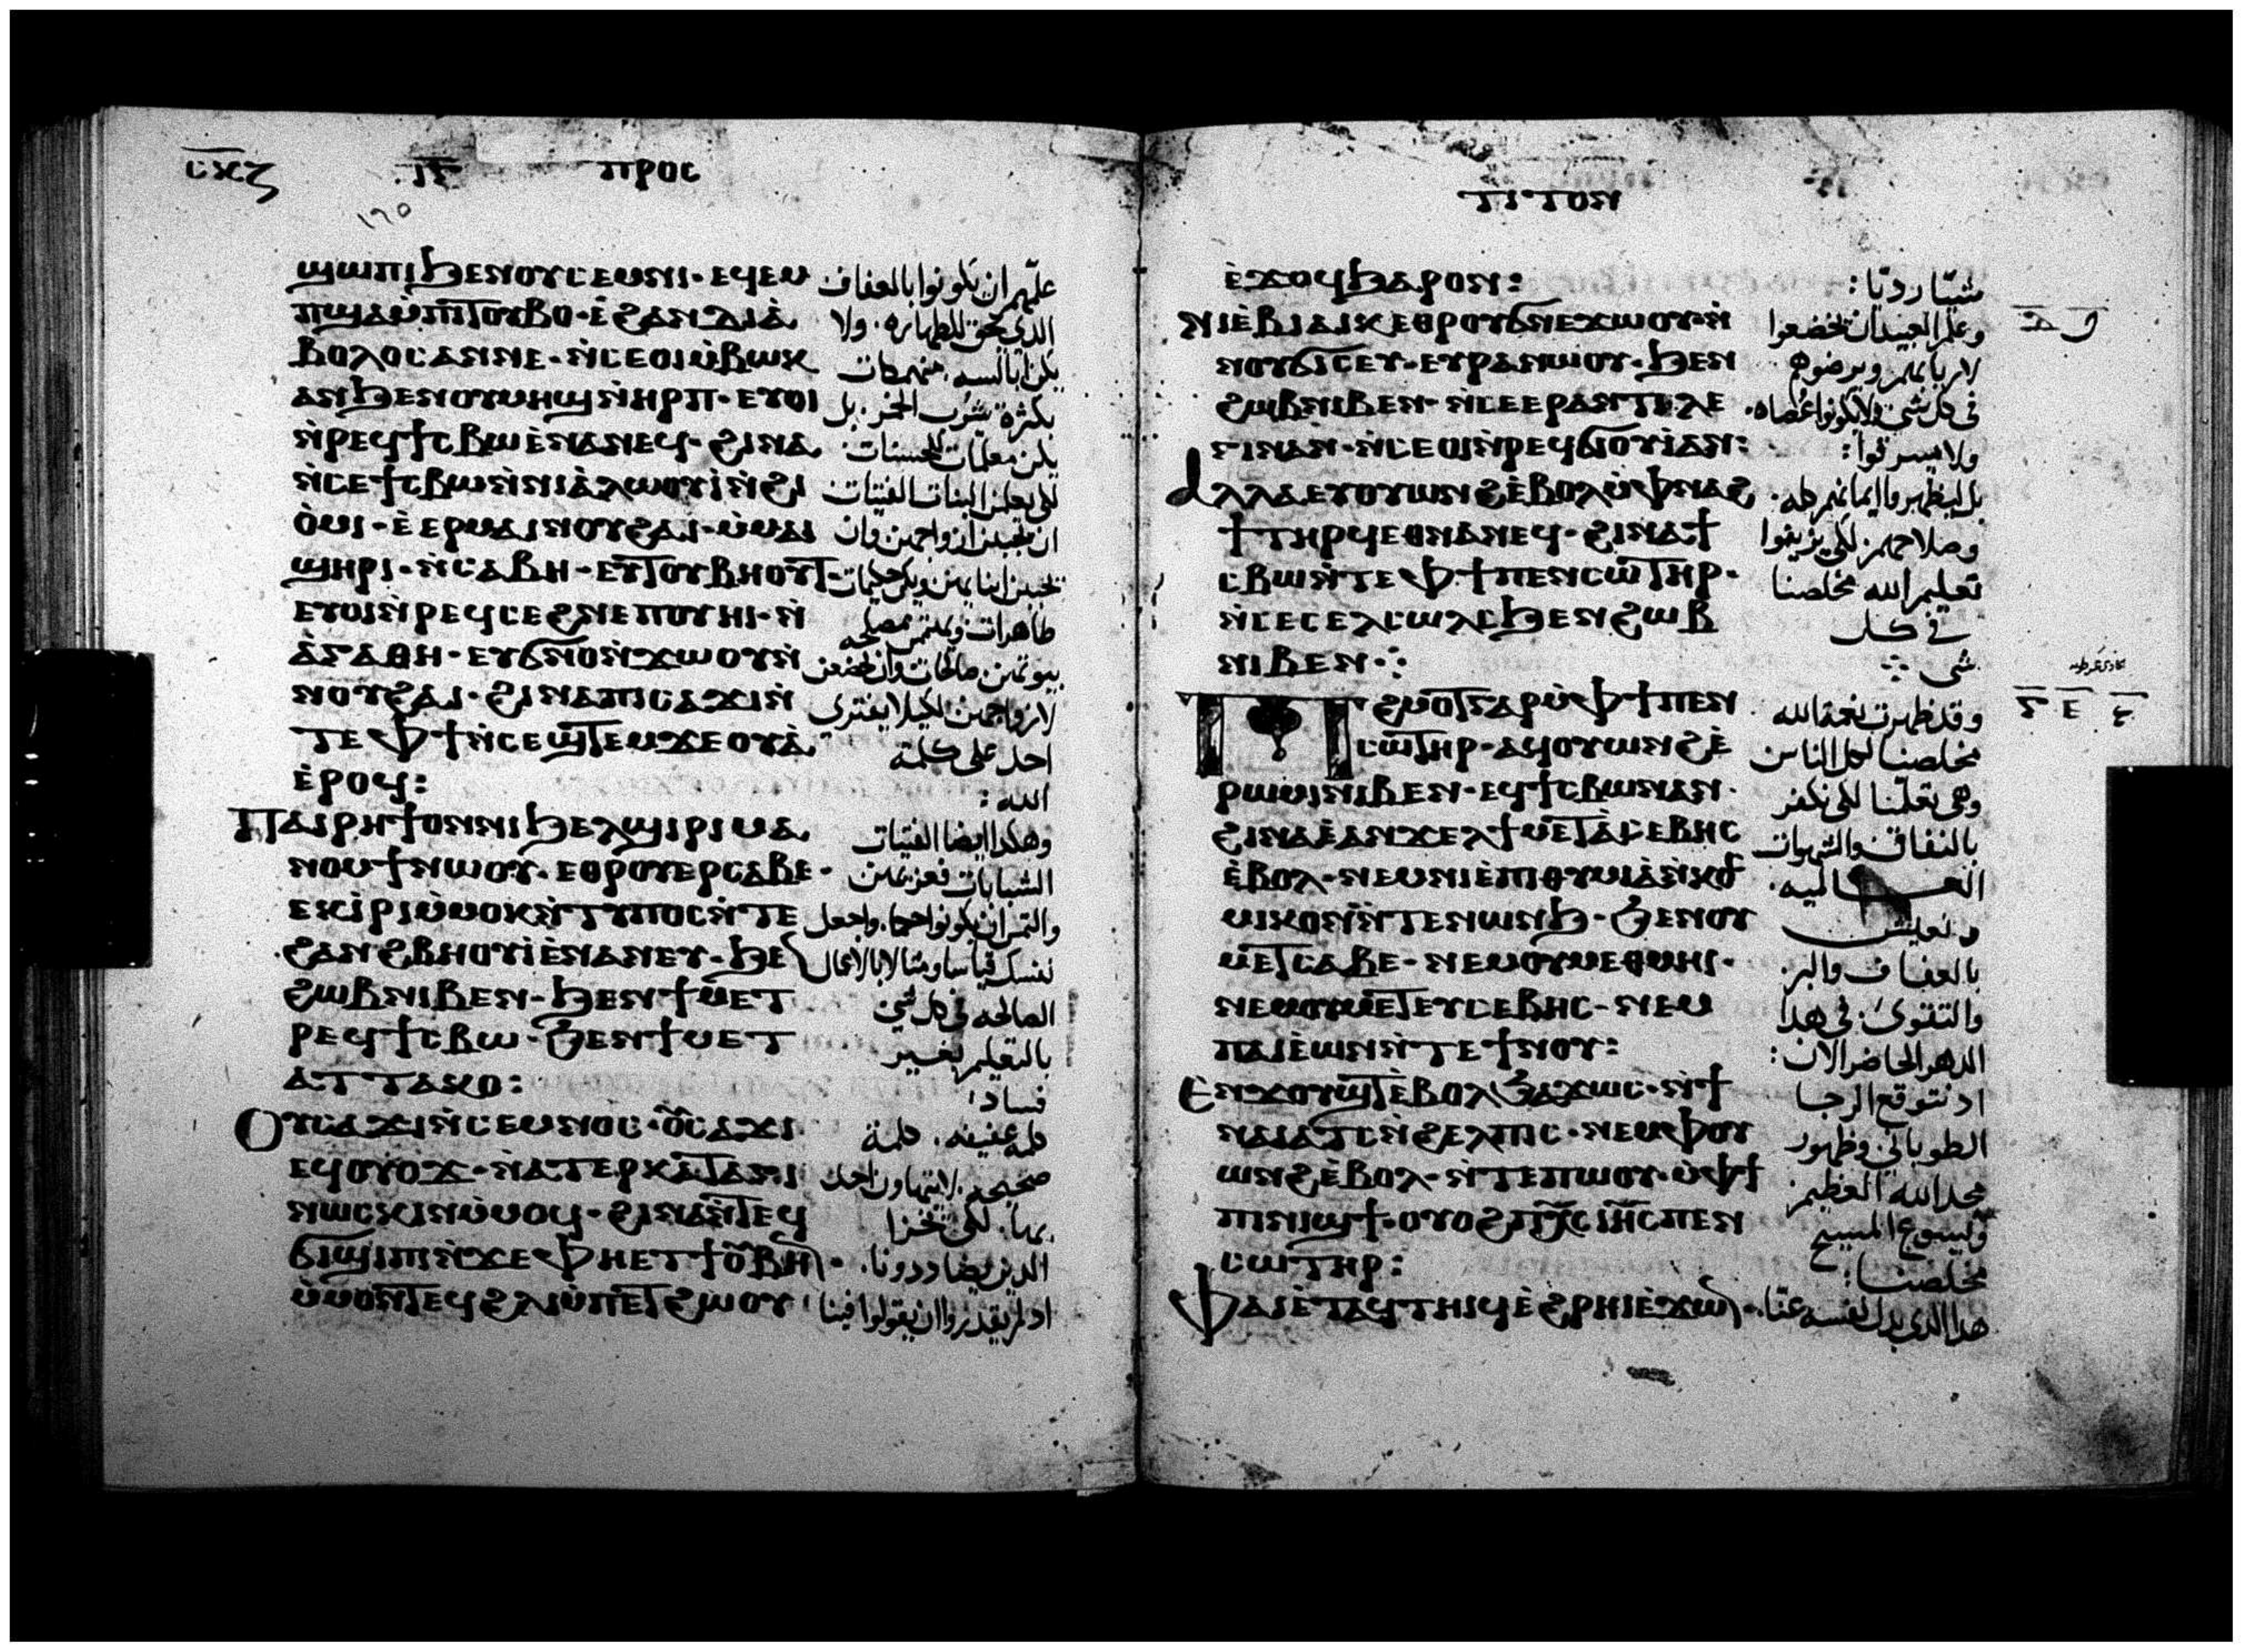 ⲥⲕⲍ ⲓⲅ ⲡⲣⲟⲥ
ϣⲱⲡⲓ ϧⲉⲛⲟⲩⲥⲉⲙⲛⲓ · ⲉϥⲉⲙ
ⲡϣⲁ ⲙ̇ⲡⲧⲟⲩⲃⲟ · ⲉ̇ϩⲁⲛⲇⲓⲁ̇
ⲃⲟⲗⲟⲥ ⲁⲛⲛⲉ · ⲛ̇ⲥⲉⲟⲓⲙ̇ⲃⲱⲕ
ⲁⲛ ϧⲉⲛⲟⲩⲙⲏϣ ⲛ̇ⲏⲣⲡ · ⲉⲩⲟⲓ
ⲛ̇ⲣⲉϥϯⲥⲃⲱ ⲉ̇ⲛⲁⲛⲉϥ · ϩⲓⲛⲁ
ⲛ̇ⲥⲉϯⲥⲃⲱ ⲛ̇ⲛⲓⲁ̇ⲗⲱⲟⲩⲓ̇ ⲛ̇ϩⲓ
ⲟ̇ⲙⲓ · ⲉ̇ⲉⲣⲙⲁⲓⲛⲟⲩϩⲁⲓ · ⲙ̇ⲙⲁⲓ
ϣⲏⲣⲓ · ⲛ̇ⲥⲁⲃⲏ · ⲉⲩⲧⲟⲩⲃⲏⲟⲩⲧ
ⲉⲩⲟⲓⲛ̇ⲣⲉϥⲥⲉϩⲛⲉ ⲡⲟⲩⲏⲓ · ⲛ̇
ⲁ̇ⲅⲁⲑⲏ · ⲉⲩϭⲛⲟⲛ̇ϫⲱⲟⲩ ⲛ̇
ⲛⲟⲩϩⲁⲓ · ϩⲓⲛⲁ ⲡⲓⲥⲁϫⲓ ⲛ̇
ⲧⲉ ⲫϯ ⲛ̇ⲥⲉϣⲧⲉⲙϫⲉⲟⲩⲁ̇
ⲉ̇ⲣⲟϥ :
ⲡⲁⲓⲣⲏϯ ⲟⲛ ⲛⲓϧⲉⲗϣⲓⲣⲓ ⲙⲁ
ⲛⲟⲙϯ ⲛⲱⲟⲩ · ⲉⲑⲣⲟⲩⲉⲣⲥⲁⲃⲉ ·
ⲉⲕⲓ̇ⲣⲓ ⲙ̇ⲙⲟⲕ ⲛ̇ⲧⲩⲡⲟⲥ ⲛ̇ⲧⲉ
ϩⲁⲛϩⲃⲏⲟⲩⲓ̇ ⲉ̇ⲛⲁⲛⲉⲩ · ϧⲉ
ϩⲱⲃ ⲛⲓⲃⲉⲛ · ϧⲉⲛϯⲙⲉⲧ
ⲣⲉϥϯⲥⲃⲱ · ϧⲉⲛϯⲙⲉⲧ
ⲁⲧⲧⲁⲕⲟ :
ⲟⲩⲥⲁϫⲓ ⲛ̇ⲥⲉⲙⲛⲟⲥ · ⲟⲩⲥⲁϫⲓ
ⲉϥⲟⲩⲟϫ · ⲛ̇ⲁⲧⲉⲣⲕⲁⲧⲁⲅⲓ
ⲛⲱⲥⲕⲓⲛ ⲙ̇ⲙⲟϥ · ϩⲓⲛⲁ ⲛ̇ⲧⲉϥ
ϭⲓϣⲓⲡⲓ ⲛ̇ϫⲉ ⲫⲏⲉⲧϯⲟⲩⲃⲏⲛ ·
ⲙ̇ⲙⲟⲛⲧⲉϥ ϩⲗⲓ ⲙ̇ⲡⲉⲧϩⲱⲟⲩ
عليهم ان يكونوا بالعفاف
الذي يحق للطهاره. ولا
يكن ابالسه. منهمكات
بكثرة شرب الخمر. بل
يكن معلمات للحسنات
لكي يعلمن البنات الفتيات
ان يحببن ازواجهن وان
يحببن ابنايهن ويكن حكيمات
طاهرات ويهتمن بمصلحه
بيوتهن صالحات وان يخضعن
لازواجهن لكيلا يفتري
احد على كلمة
الله :
وهكدا ايضا الفتيات
الشبابات فعزيهن
والتمس ان يكونوا حكما. واجعل
نفسك قياسا ومثالا بالاعمال
الصالحه في كل شي
بالتعليم بغير
فساد
كلمه عفيفه. كلمة
صحيحه. لا يتهاون احد
بها. لكي يخزا
الدين يضاددونا.
اد لم يقدروا ان يقولوا فينا
ⲧⲓⲧⲟⲛ
ⲉ̇ϫⲟϥ ϧⲁⲣⲟⲛ :
ⲛⲓⲉ̇ⲃⲓⲁⲓⲕ ⲉⲑⲣⲟⲩϭⲛⲉϫⲱⲟⲩ · ⲛ̇
ⲛⲟⲩϭⲓⲥⲉⲩ · ⲉⲩⲣⲁⲛⲱⲟⲩ · ϧⲉⲛ
ϩⲱⲃ ⲛⲓⲃⲉⲛ · ⲛ̇ⲥⲉⲉⲣⲁⲛⲧⲓⲗⲉ
ⲅⲓⲛ ⲁⲛ · ⲛ̇ⲥⲉⲟⲓ ⲛ̇ⲣⲉϥϭⲓⲟⲩⲓ̇ ⲁⲛ :
ⲁⲗⲗⲁ ⲉⲩⲟⲩⲱⲛϩ ⲉ̇ⲃⲟⲗ ⲙ̇ⲫⲛⲁϩ
ϯ ⲧⲏⲣϥ ⲉⲑⲛⲁⲛⲉϥ · ϩⲓⲛⲁ ϯ
ⲥⲃⲱ ⲛ̇ⲧⲉ ⲫϯ ⲡⲉⲛⲥⲱⲧⲏⲣ ·
ⲛ̇ⲥⲉⲥⲉⲗⲥⲱⲗⲥ ϧⲉⲛϩⲱⲃ
ⲛⲓⲃⲉⲛ ⁘
ⲡϩⲙⲟⲧ ⲅⲁⲣ ⲙ̇ⲫϯ ⲡⲉⲛ
ⲥⲱⲧⲏⲣ · ⲁϥⲟⲩⲱⲛϩ ⲉ̇
ⲣⲱⲙⲓ ⲛⲓⲃⲉⲛ · ⲉϥϯⲥⲃⲱ ⲛⲁⲛ ·
ϩⲓⲛⲁ ⲉ̇ⲁⲛⲭⲉⲗ ϯⲙⲉⲧⲁ̇ⲥⲉⲃⲏⲥ
ⲉ̇ⲃⲟⲗ · ⲛⲉⲙ ⲛⲓⲉ̇ⲡⲓⲑⲩⲙⲓⲁ̇ ⲛ̇ⲕⲟⲥ
ⲙⲓⲕⲟⲛ ⲛ̇ⲧⲉⲛⲱⲛϧ · ϧⲉⲛⲟⲩ
ⲙⲉⲧⲥⲁⲃⲉ · ⲛⲉⲙ ⲟⲩⲙⲉⲑⲙⲏⲓ ·
ⲛⲉⲙ ⲟⲩⲙⲉⲧⲉⲩⲥⲉⲃⲏⲥ · ⲛⲉⲙ
ⲡⲁⲓⲉ̇ⲱⲛ ⲛ̇ⲧⲉ ϯⲛⲟⲩ :
ⲉⲛϫⲟⲩϣⲧ ⲉ̇ⲃⲟⲗ ϧⲁϫⲱⲥ · ⲛ̇ϯ
ⲙⲁⲓⲁⲧⲥ ⲛ̇ϩⲉⲗⲡⲓⲥ · ⲛⲉⲙ ⲫⲟⲩ
ⲱⲛϩ ⲉ̇ⲃⲟⲗ · ⲛ̇ⲧⲉ ⲡⲱⲟⲩ · ⲙ̇ⲫϯ
ⲡⲓⲛⲓϣϯ · ⲟⲩⲟϩ ⲡⲭⲥ ⲓⲏⲥ ⲡⲉⲛ
ⲥⲱⲧⲏⲣ :
ⲫⲁⲓ ⲉ̇ⲧⲁϥⲧⲏⲓϥ ⲉ̇ϩⲣⲏⲓ ⲉ̇ϫⲱⲛ ·
شيا رديا :
وعلم العبيد ان يخضعوا
لاربابهم ويرضوهم
في كل شي ولا يكونوا عصاه.
ولا يسرقوا :
بل ليظهروا ايمانهم كله.
وصلاحهم لكي يزينوا
تعليم الله مخلصنا
في كل
شي ⁘
وقد ظهرت نعمة الله
مخلصنا لكل الناس
وهي تعلمنا لكي نكفر
بالنفاق والشهوات
العـالميه.
ونعيش
بالعفاف والبر
والتقوى. في هدا
الدهر الحاضر الان :
اد نتوقع الرجا
الطوباني وظهور
مجد الله العظيم
ويسوع المسيح
مخلصنا :
هدا الدي بدل نفسه عنا.